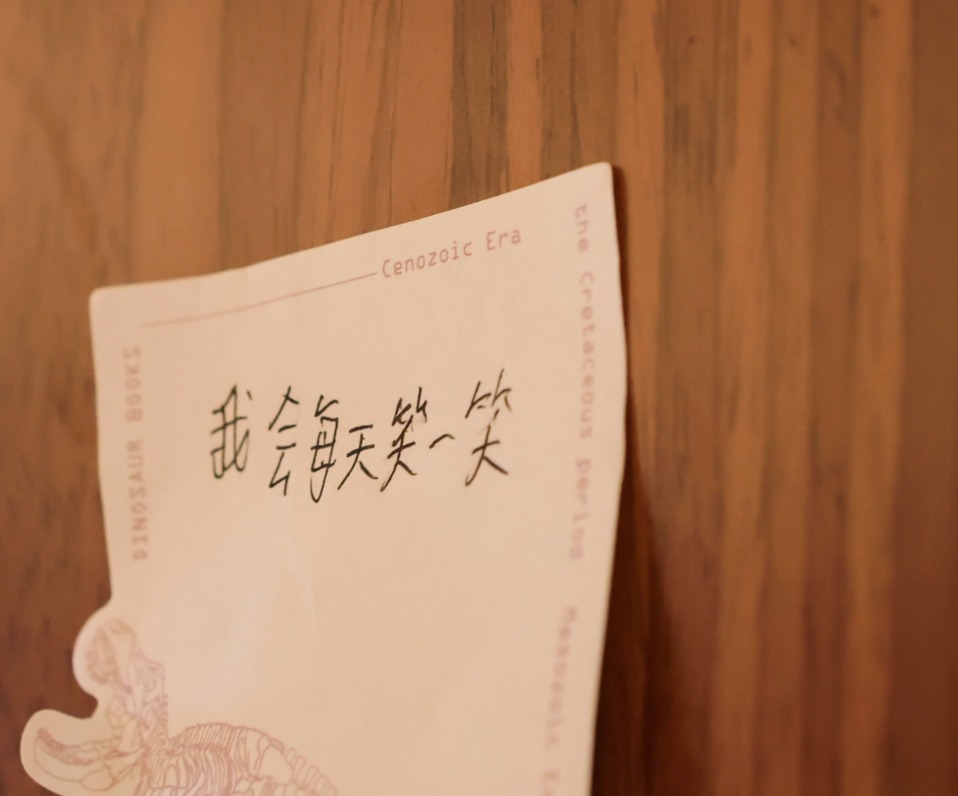 Cenozoic Era
the Cretaceous period
DINOSAUR BOOKS
我会每天笑一笑
Mesozoic E